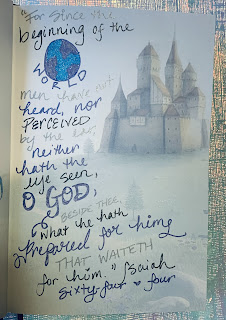 "For since the
beginning of the
WORLD
men have not
heard, nor
PERCEIVED
by the ear,
neither
hath the
eye seen,
O GOD,
BESIDE THEE,
what he hath
Prepared for him
THAT WAITETH
for him." Isaiah
sixty-four * four